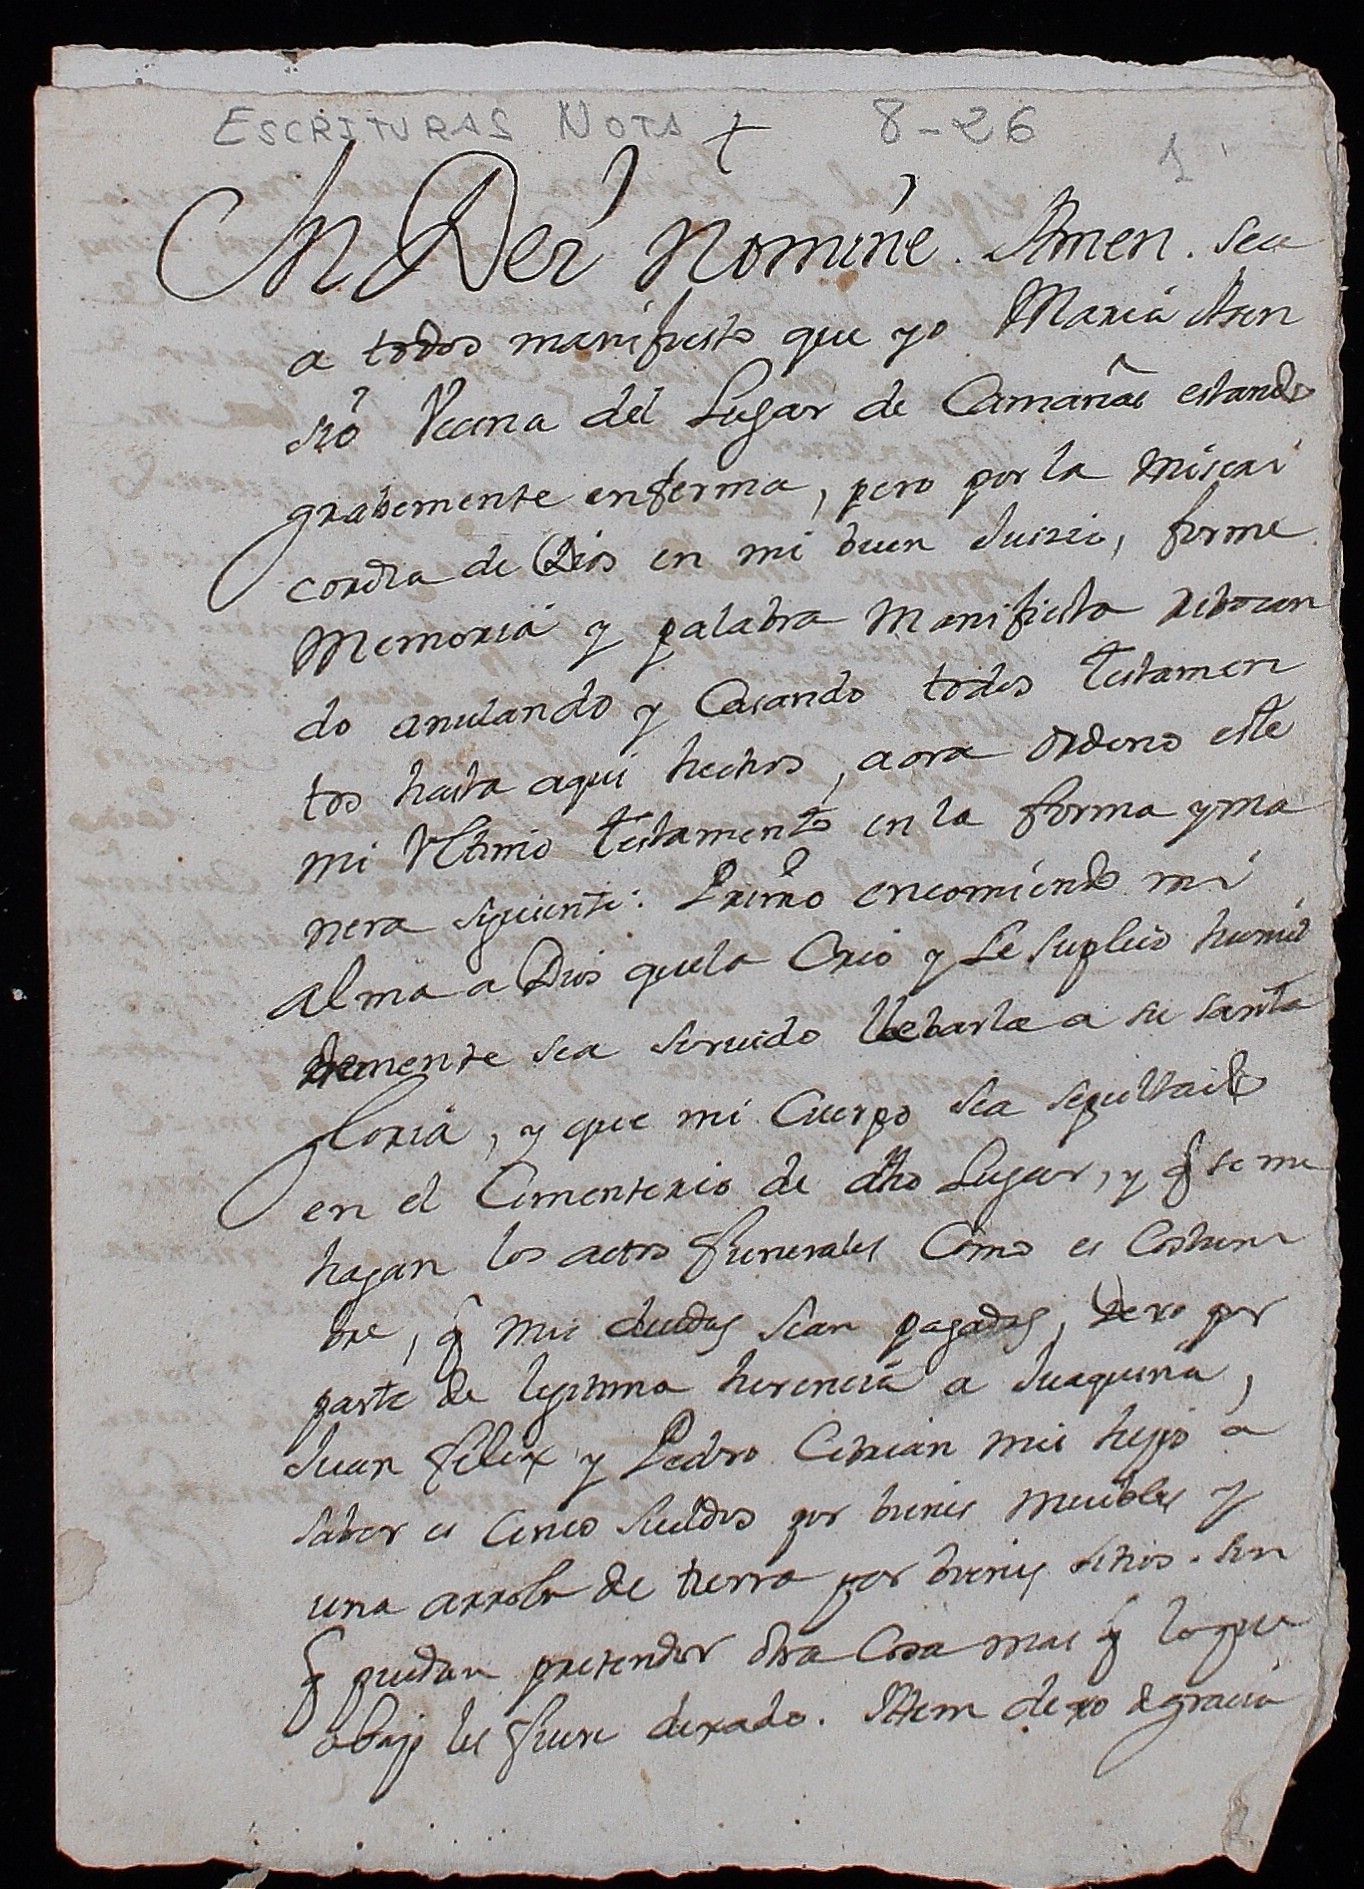 ESCRITURAS NOTS + 8-26
1
In Dei Nomine. Amen. sea
a todos manifiesto que yo Maria Asen
sio Vecina del Lugar de Camañas estando
grabemente enferma, pero por la Miseri
cordia de Dios en mi buen Juizio, firme
Memoria y palabra Manifiesta rebocan
do anulando y Casando todos Testamen
tos hasta aqui hechos, aora ordeno este
mi Ultimo Testamento en la forma y ma
nera siguiente: Primo encomiendo mi
alma a Dios que la Crio y le suplico humil
demente sea servido llebarla a su santa
Gloria, y que mi Cuerpo sea sepultado
en el Cimenterio de dho Lugar, y q se me
hagan los actos funerales Como es Costum
bre, q mis deudas sean pagadas, Dexo por
parte de legitima herencia a Juaquina,
Juan Felix y Pedro Cebrian mis hijos a
saber es Cinco sueldos por bienes muebles y
una arroba de tierra por bienes sitios. sin
q puedan pretender otra Cosa mas q lo que
abajo les fuere dexado. Ittem dexo de gracia